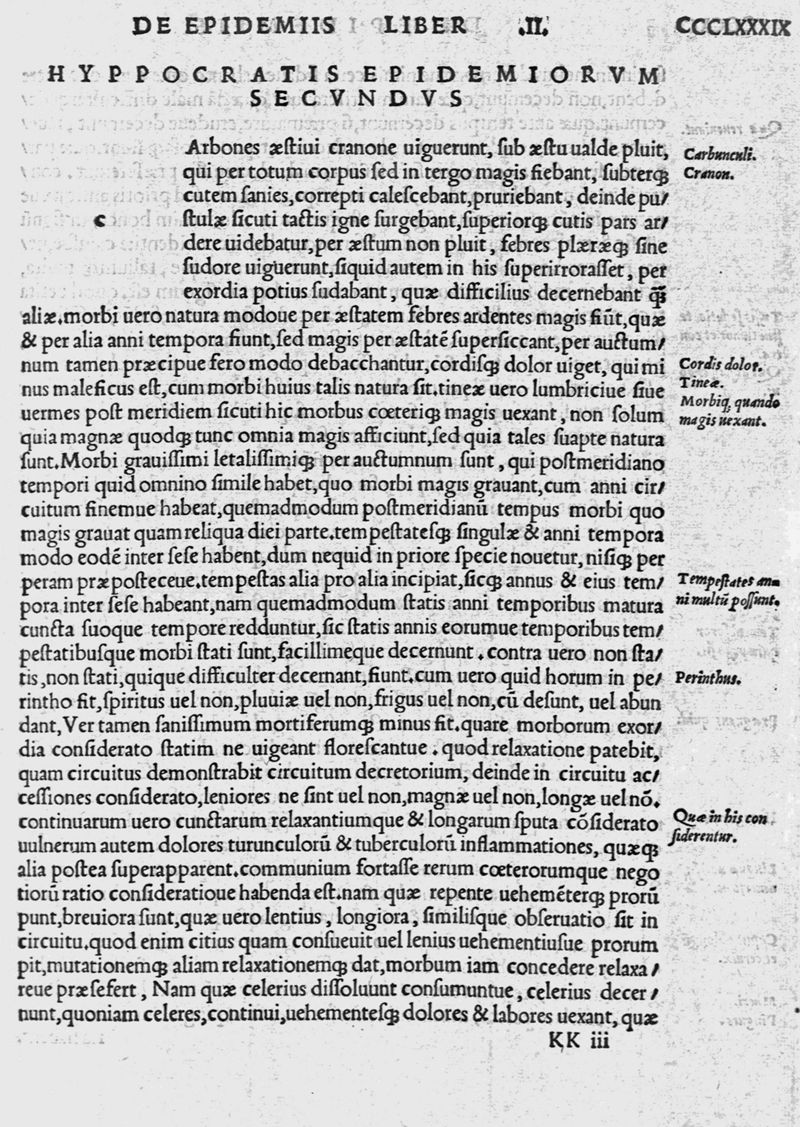 DE EPIDEMIIS LIBER .II. CCCLXXXIX
HYPPOCRATIS EPIDEMIORVM
SECVNDVS
Arbones æstiui cranone uiguerunt, sub æstu ualde pluit,
Carbunculi.
qui per totum corpus sed in tergo magis fiebant, subterq;
Cranon.
cutem sanies, correpti calescebant, pruriebant, deinde pu/
c
stulæ sicuti tactis igne surgebant, superiorq; cutis pars ar/
dere uidebatur, per æstum non pluit, febres plæræq; sine
sudore uiguerunt, siquid autem in his superirrorasset, per
exordia potius sudabant, quæ difficilius decernebant q̃
aliæ. morbi uero natura modoue per æstatem febres ardentes magis fiūt, quæ
& per alia anni tempora fiunt, sed magis per æstatē supersiccant, per autum/
num tamen præcipue fero modo debacchantur, cordisq; dolor uiget, qui mi
Cordis dolor.
nus maleficus est, cum morbi huius talis natura sit. tineæ uero lumbriciue siue
Tineæ.
uermes post meridiem sicuti hic morbus cœteriq; magis uexant, non solum
Morbiq, quando
magis uexant.
quia magnæ quodq; tunc omnia magis afficiunt, sed quia tales suapte natura
sunt. Morbi grauissimi letalissimiq; per auctumnum sunt, qui postmeridiano
tempori quid omnino simile habet, quo morbi magis grauant, cum anni cir/
cuitum finemue habeat, quemadmodum postmeridianū tempus morbi quo
magis grauat quam reliqua diei parte. tempestatesq; singulæ & anni tempora
modo eodē inter sese habent, dum nequid in priore specie nouetur, nisiq; per
peram præposteceue. tempestas alia pro alia incipiat, sicq; annus & eius tem/
Tempestates an
ni multū possunt.
pora inter sese habeant, nam quemadmodum statis anni temporibus matura
cuncta suoque tempore redduntur, sic statis annis eorumue temporibus tem/
pestatibusque morbi stati sunt, facillimeque decernunt. contra uero non sta/
tis, non stati, quique difficulter decernant, fiunt. cum uero quid horum in pe/
Perinthus.
rintho fit, spiritus uel non, pluuiæ uel non, frigus uel non, cū desunt, uel abun
dant, Ver tamen sanissimum mortiferumq; minus fit. quare morborum exor/
dia considerato statim ne uigeant florescantue. quod relaxatione patebit,
quam circuitus demonstrabit circuitum decretorium, deinde in circuitu ac/
cessiones considerato, leniores ne sint uel non, magnæ uel non, longæ uel nō.
continuarum uero cunctarum relaxantiumque & longarum sputa cōsiderato
Quæ in his con
siderentur.
uulnerum autem dolores turunculorū & tuberculorū inflammationes, quæq;
alia postea superapparent. communium fortasse rerum cœterorumque nego
tiorū ratio consideratioue habenda est. nam quæ repente uehemēterq; prorū
punt, breuiora sunt, quæ uero lentius, longiora, similisque obseruatio sit in
circuitu. quod enim citius quam consueuit uel lenius uehementiusue prorum
pit, mutationemq; aliam relaxationemq; dat, morbum iam concedere relaxa/
reue præsefert, Nam quæ celerius dissoluunt consumuntue, celerius decer/
nunt, quoniam celeres, continui, uehementesq; dolores & labores uexant, quæ
KK iii